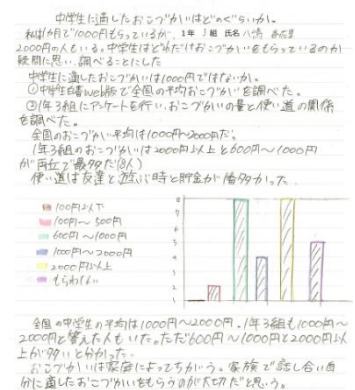 中学生に適したおこづかいはどのぐらいか。
私は1か月で1000円もらっているが、
1年 3組 氏名
2000円の人もいる。中学生はどれだけおこづかいをもらっているのか
疑問に思い、調べることにした
中学生に適したおこづかいは1000円ではないか。
①中学生白書web版で全国の平均おこづかいを調べた。
②1年3組にアンケートを行い、おこづかいの量と使い道の関係
を調べた。
全国のおこづかい平均は1000円〜2000円だ。
1年3組のおこづかいは2000円以上と600円〜1000円
が同位で最多だ(8人)
使い道は友達と遊ぶ時と貯金が1番多かった。
100円以下
100円〜500円
600円〜1000円
1000円〜2000円
2000円以上
もらわない
8
7
6
5
4
3
2
1
全国の中学生の平均は1000円〜2000円。1年3組も1000円〜
2000円と答えた人もいた。ただ600円〜1000円と2000円以
上が多いと分かった。
おこづかいは家庭によってちがう。家族で話し合い自
分に適したおこづかいをもらうのが大切だと思う。